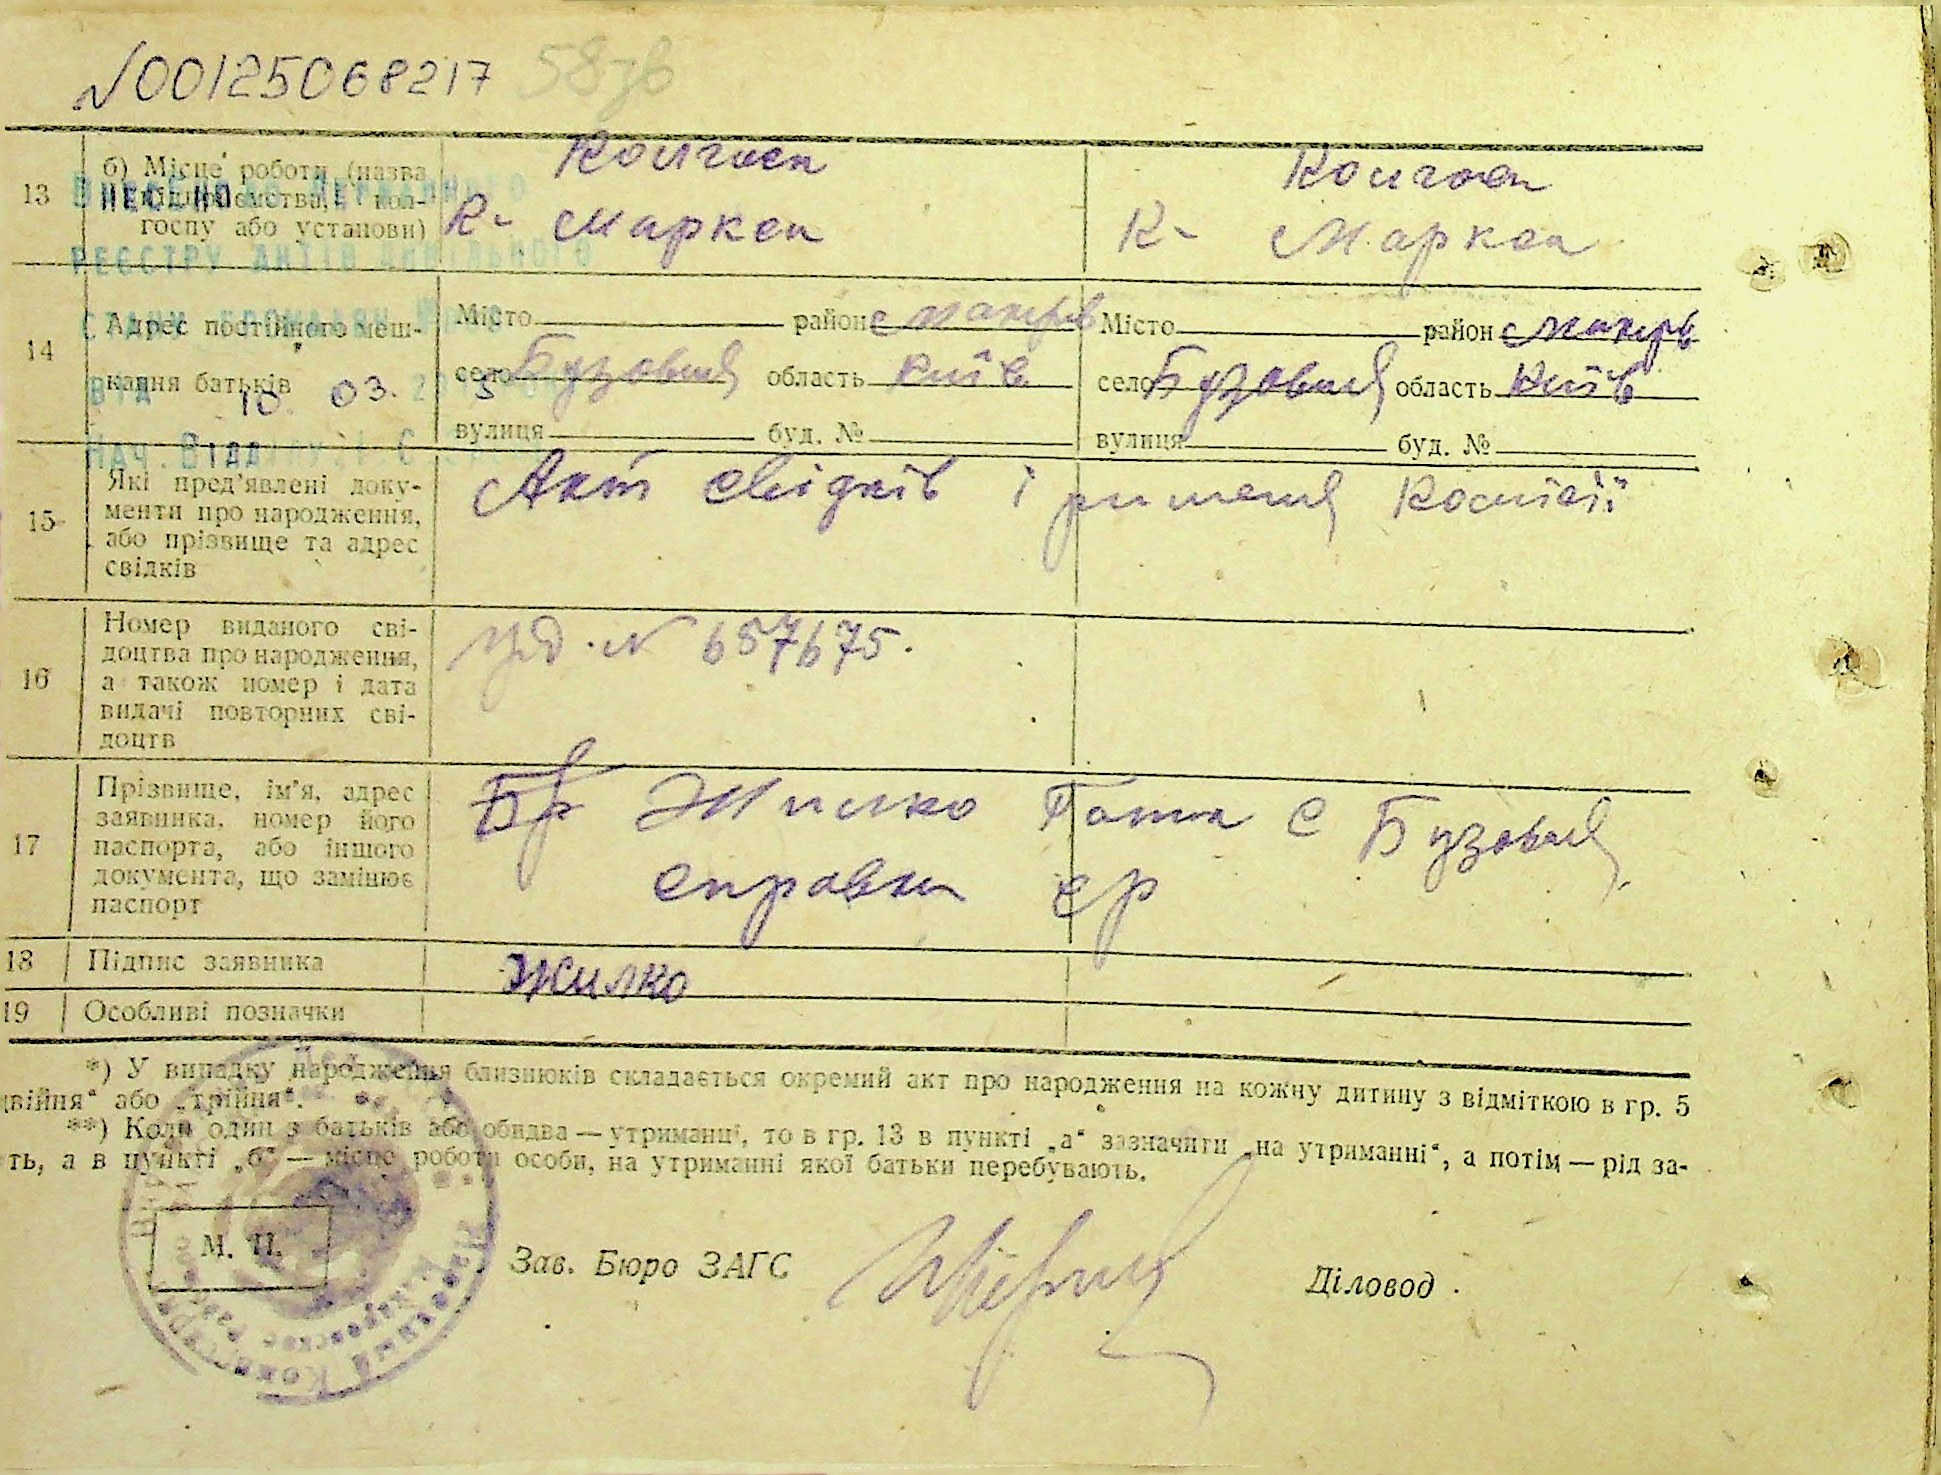 №00125068217 58зв
13
б) Місце роботи (назва підприємства, колгоспу або установи)
Колгосп
К- Маркса
Колгосп
К- Маркса
ВНЕСЕНО ДО ДЕРЖАВНОГО
РЕЄСТРУ АКТІВ ЦИВІЛЬНОГО
СТАНУ ГРОМАДЯН
ВІД 10. 03.
НАЧ. ВІДДІЛУ
14
Адрес постійного мешкання батьків
Місто район Макарів
село Бузовая область Київ
вулиця буд. №
Місто район Макарів
село Бузовая область Київ
вулиця буд. №
15
Які пред'явлені доку-
менти про народження,
або прізвище та адрес
свідків
Акт свідків і рішення Комісії
16
Номер виданого сві-
доцтва про народження,
а також номер і дата
видачі повторних сві-
доцтв
№ 657675.
17
Прізвище, ім'я, адрес
заявника, номер його
паспорта, або іншого
документа, що замінює
паспорт
Жилко Ганна с Бузовая
справка ср
18 Підпис заявника Жилко
19 Особливі позначки
*) У випадку народження близнюків складається окремий акт про народження на кожну дитину з відміткою в гр. 5
двійня" або „трійня".
**) Коли один з батьків або обидва — утриманці, то в гр. 13 в пункті „а" зазначити „на утриманні", а потім — рід за-
ть, а в пункті „б" — місце роботи особи, на утриманні якої батьки перебувають.
М. П.
Зав. Бюро ЗАГС
Діловод